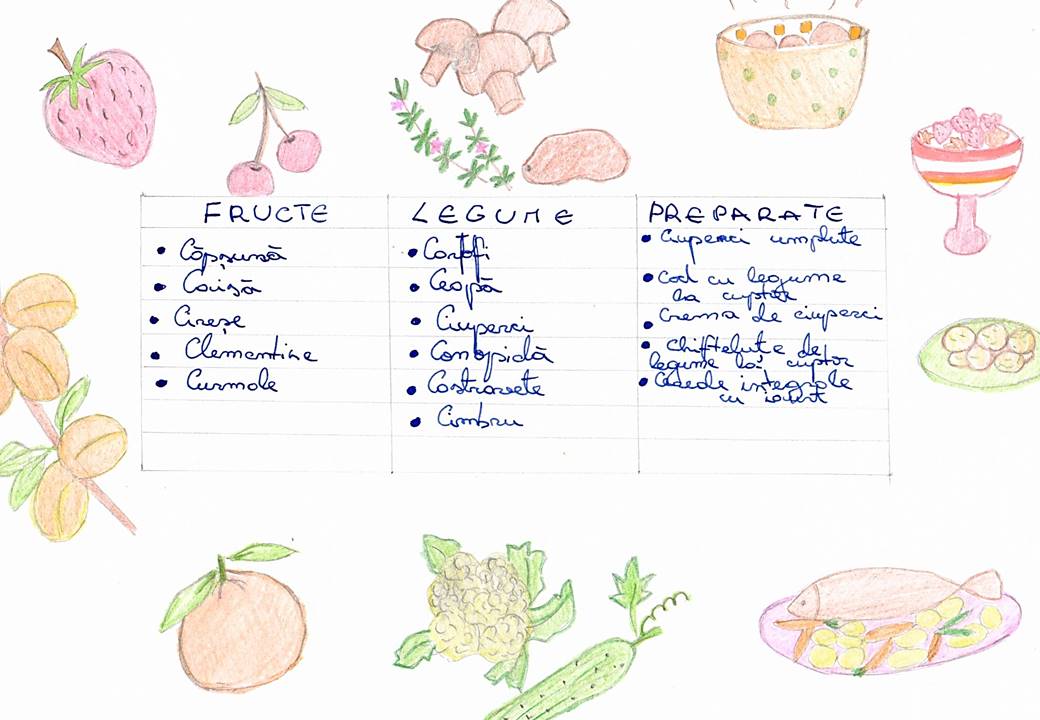 FRUCTE
• Căpșună
• Caisă
• Cireșe
• Clementine
• Curmale
LEGUME
• Cartofi
• Ceapă
• Ciuperci
• Conopidă
• Castravete
• Cimbru
PREPARATE
• Ciuperci umplute
• Cod cu legume
la cuptor
• Crema de ciuperci
• Chifteluțe de
legume la cuptor
• Cereale integrale
cu iaurt